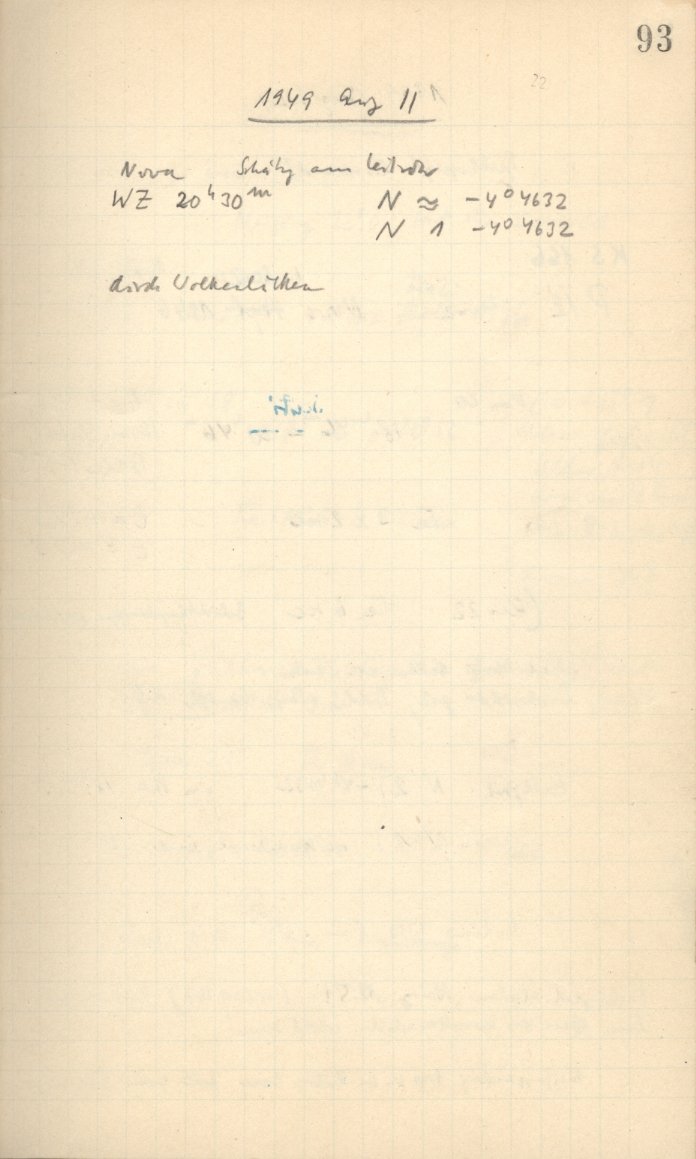 93
22
1949 Aug 11
Nova Schätzg am Leitrohr
WZ 20h30m N ≈ -4°4632
N 1 -4°4632
durch Wolkenlücken